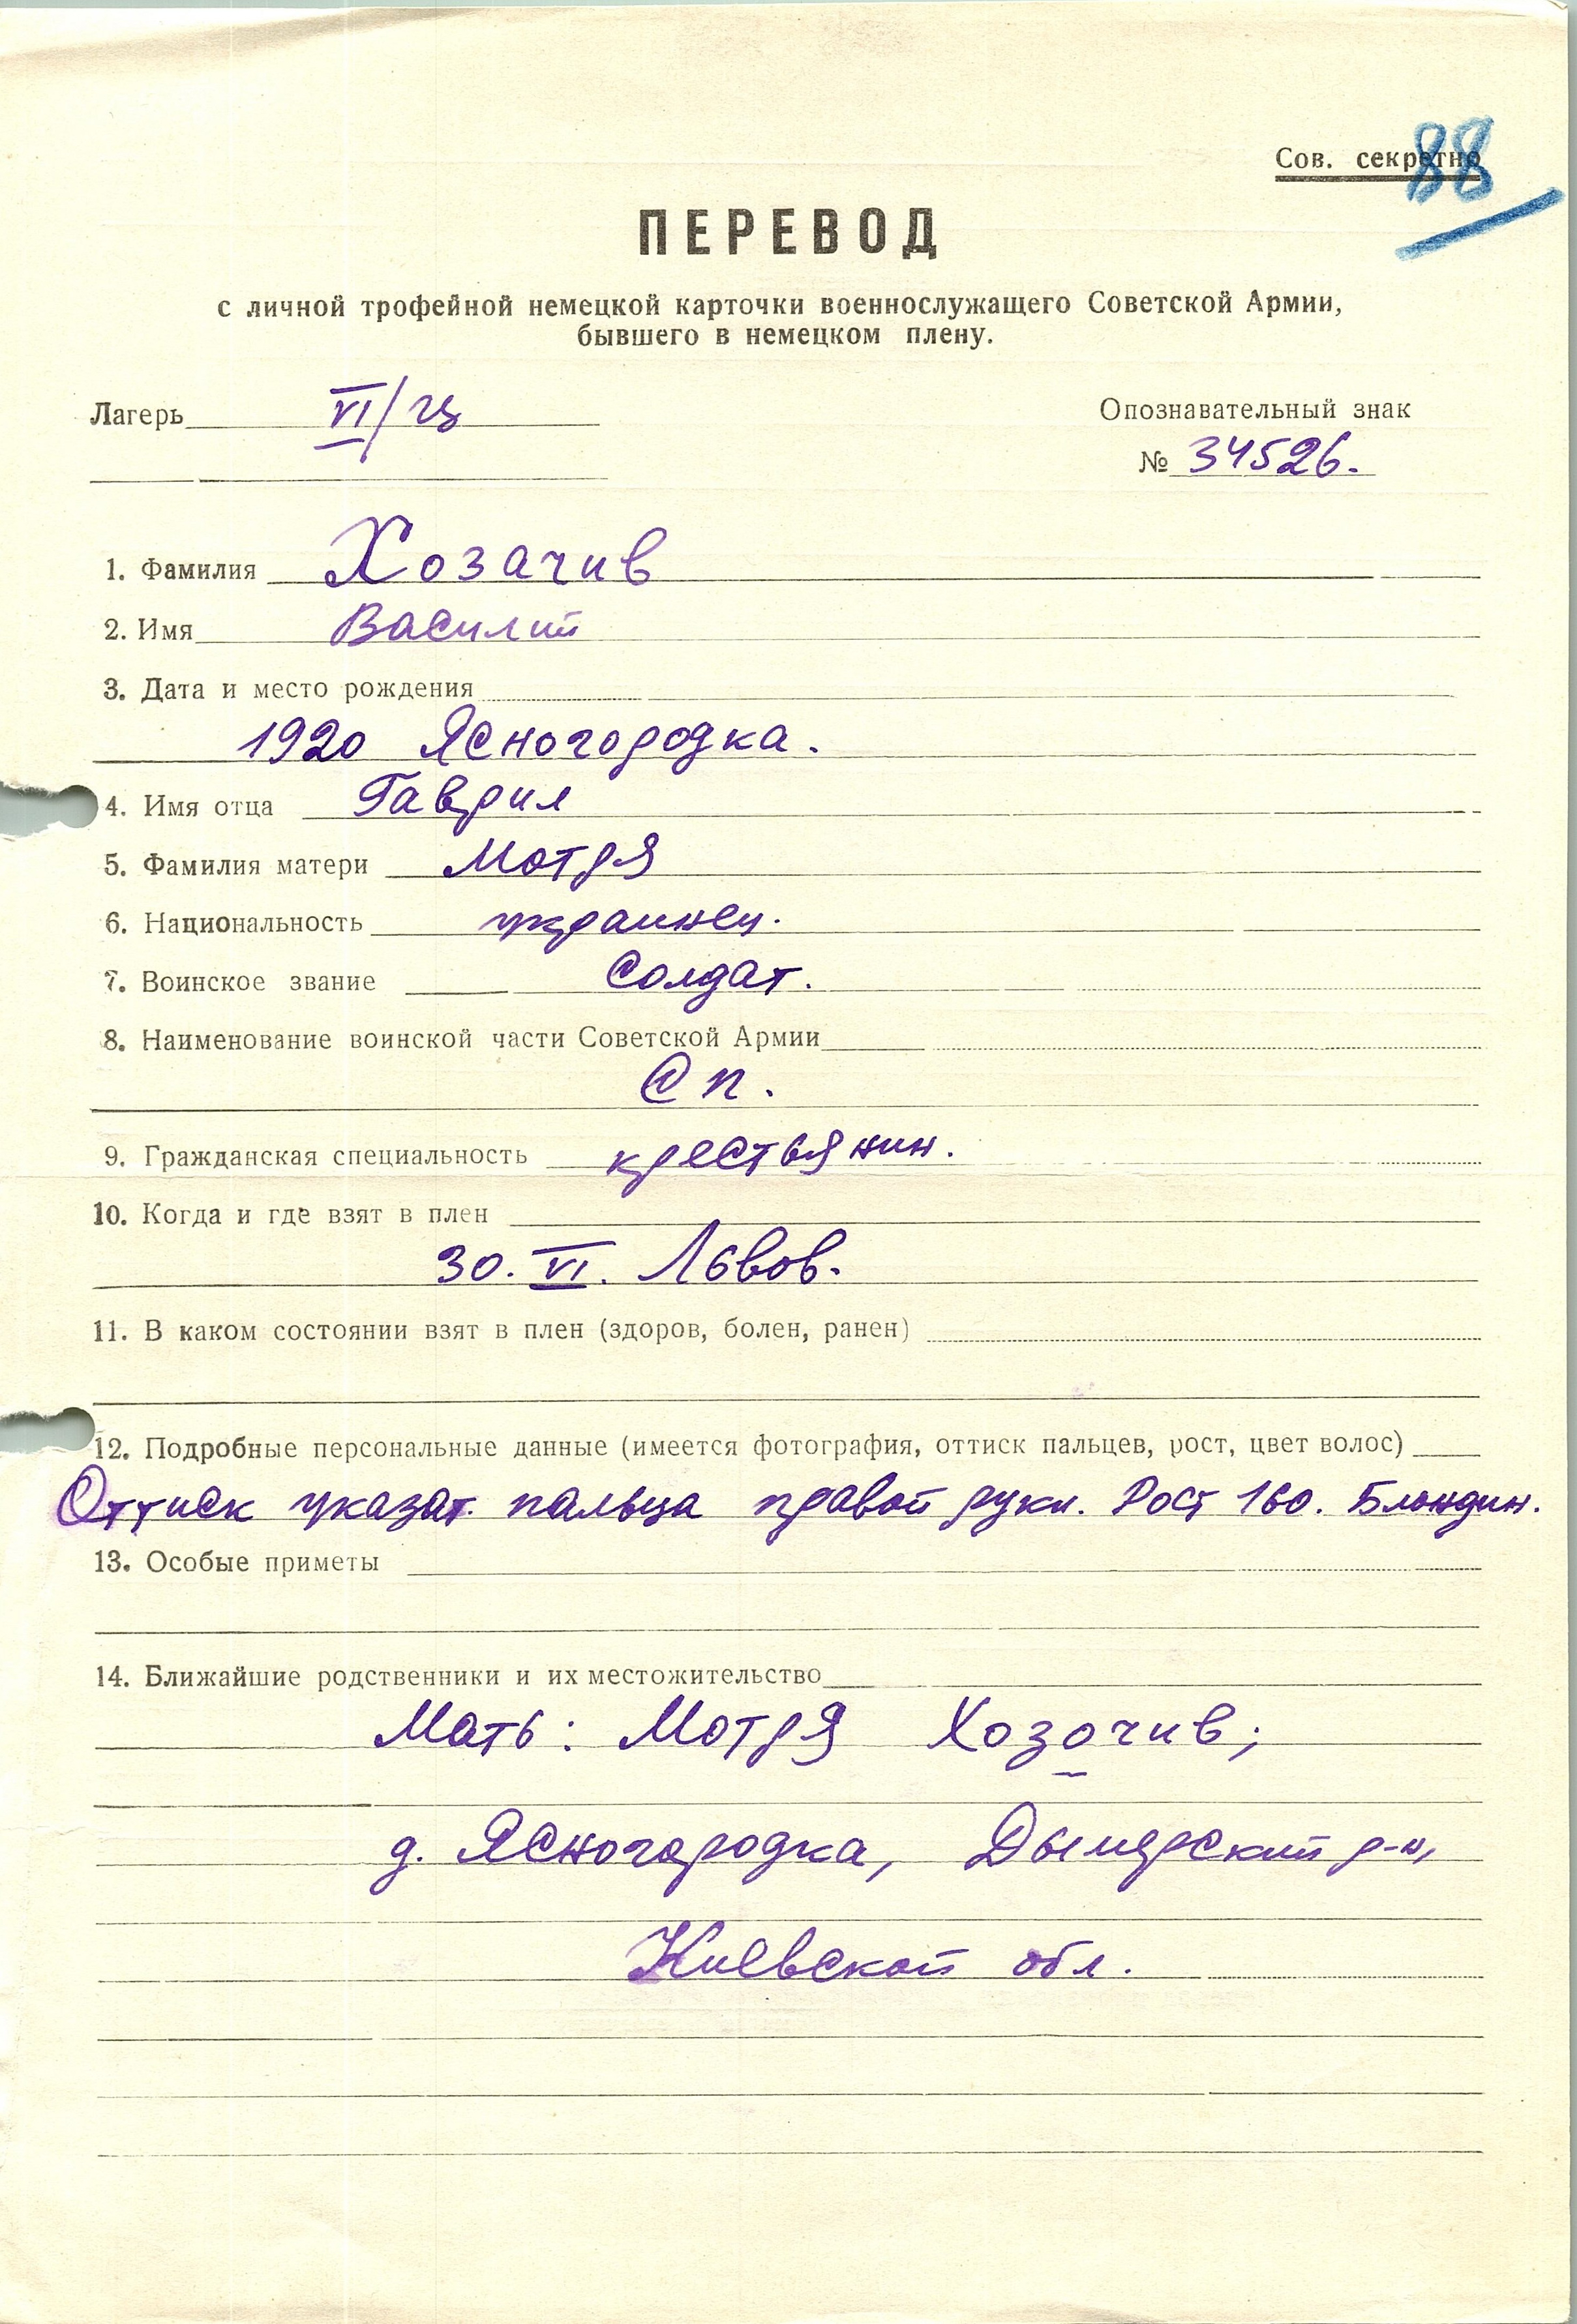 Сов. секретно
88
ПЕРЕВОД
с личной трофейной немецкой карточки военнослужащего Советской Армии,
бывшего в немецком плену.
Лагерь VI/
Опознавательный знак
№ 34526.
1. Фамилия Хозачив
2. Имя Василий
3. Дата и место рождения
1920 Ясногородка.
4. Имя отца Гаврил
5. Фамилия матери Мотря
6. Национальность украинец.
7. Воинское звание Солдат.
8. Наименование воинской части Советской Армии
Сп.
9. Гражданская специальность крестьянин.
10. Когда и где взят в плен
30. VI. Львов.
11. В каком состоянии взят в плен (здоров, болен, ранен)
12. Подробные персональные данные (имеется фотография, оттиск пальцев, рост, цвет волос)
Оттиск указат. пальца правой руки. Рост 160. Блондин.
13. Особые приметы
14. Ближайшие родственники и их местожительство
Мать: Мотря Хозочив;
д. Ясногородка, Дымерский р-н,
Киевской обл.